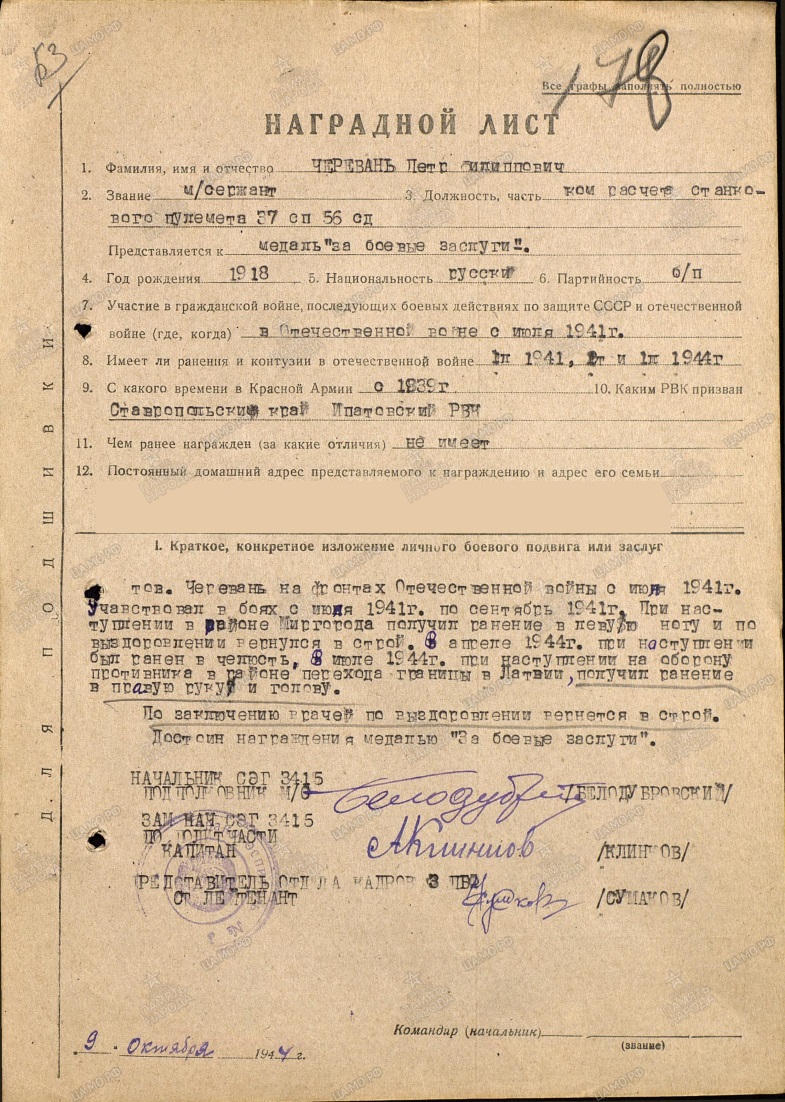 53
178
Все графы заполнять полностью
НАГРАДНОЙ ЛИСТ
1. Фамилия, имя и отчество ЧЕРЕВАНЬ Петр Филиппович
2. Звание м/сержант 3. Должность, часть ком расчета станко-
вого пулемета 37 сп 56 сд
Представляется к медаль "за боевые заслуги".
4. Год рождения 1918 5. Национальность русский 6. Партийность б/п
7. Участие в гражданской войне, последующих боевых действиях по защите СССР и отечественной
войне (где, когда) в Отечественной войне с июля 1941г.
8. Имеет ли ранения и контузии в отечественной войне 1л 1941, 1т и 1л 1944г
9. С какого времени в Красной Армии с 1939г 10. Каким РВК призван
Ставропольский край Ипатовский РВК
11. Чем ранее награжден (за какие отличия) не имеет
12. Постоянный домашний адрес представляемого к награждению и адрес его семьи
I. Краткое, конкретное изложение личного боевого подвига или заслуг
тов. Черевань на фронтах Отечественной войны с июля 1941г.
Учавствовал в боях с июля 1941г. по сентябрь 1941г. При нас-
туплении в районе Миргорода получил ранение в левую ногу и по
выздоровлении вернулся в строй. В апреле 1944г. при наступлении
был ранен в челюсть, в июле 1944г. при наступлении на оборону
противника в районе перехода границы в Латвии, получил ранение
в правую руку и голову.
По заключению врачей по выздоровлении вернется в строй.
Достоин награждения медалью "За боевые заслуги".
НАЧАЛЬНИК СЭГ 3415
ПОДПОЛКОВНИК М/С /БЕЛОДУБРОВСКИЙ/
ЗАМ НАЧ СЭГ 3415
ПО ПОЛИТЧАСТИ
КАПИТАН АКлинков /КЛИНКОВ/
ПРЕДСТАВИТЕЛЬ ОТДЕЛА КАДРОВ 3 ПБФ
СТ ЛЕЙТЕНАНТ /СУМАКОВ/
Командир (начальник)
(звание)
9 " Октября 1944 г.
ДЛЯ ПОДШИВКИ